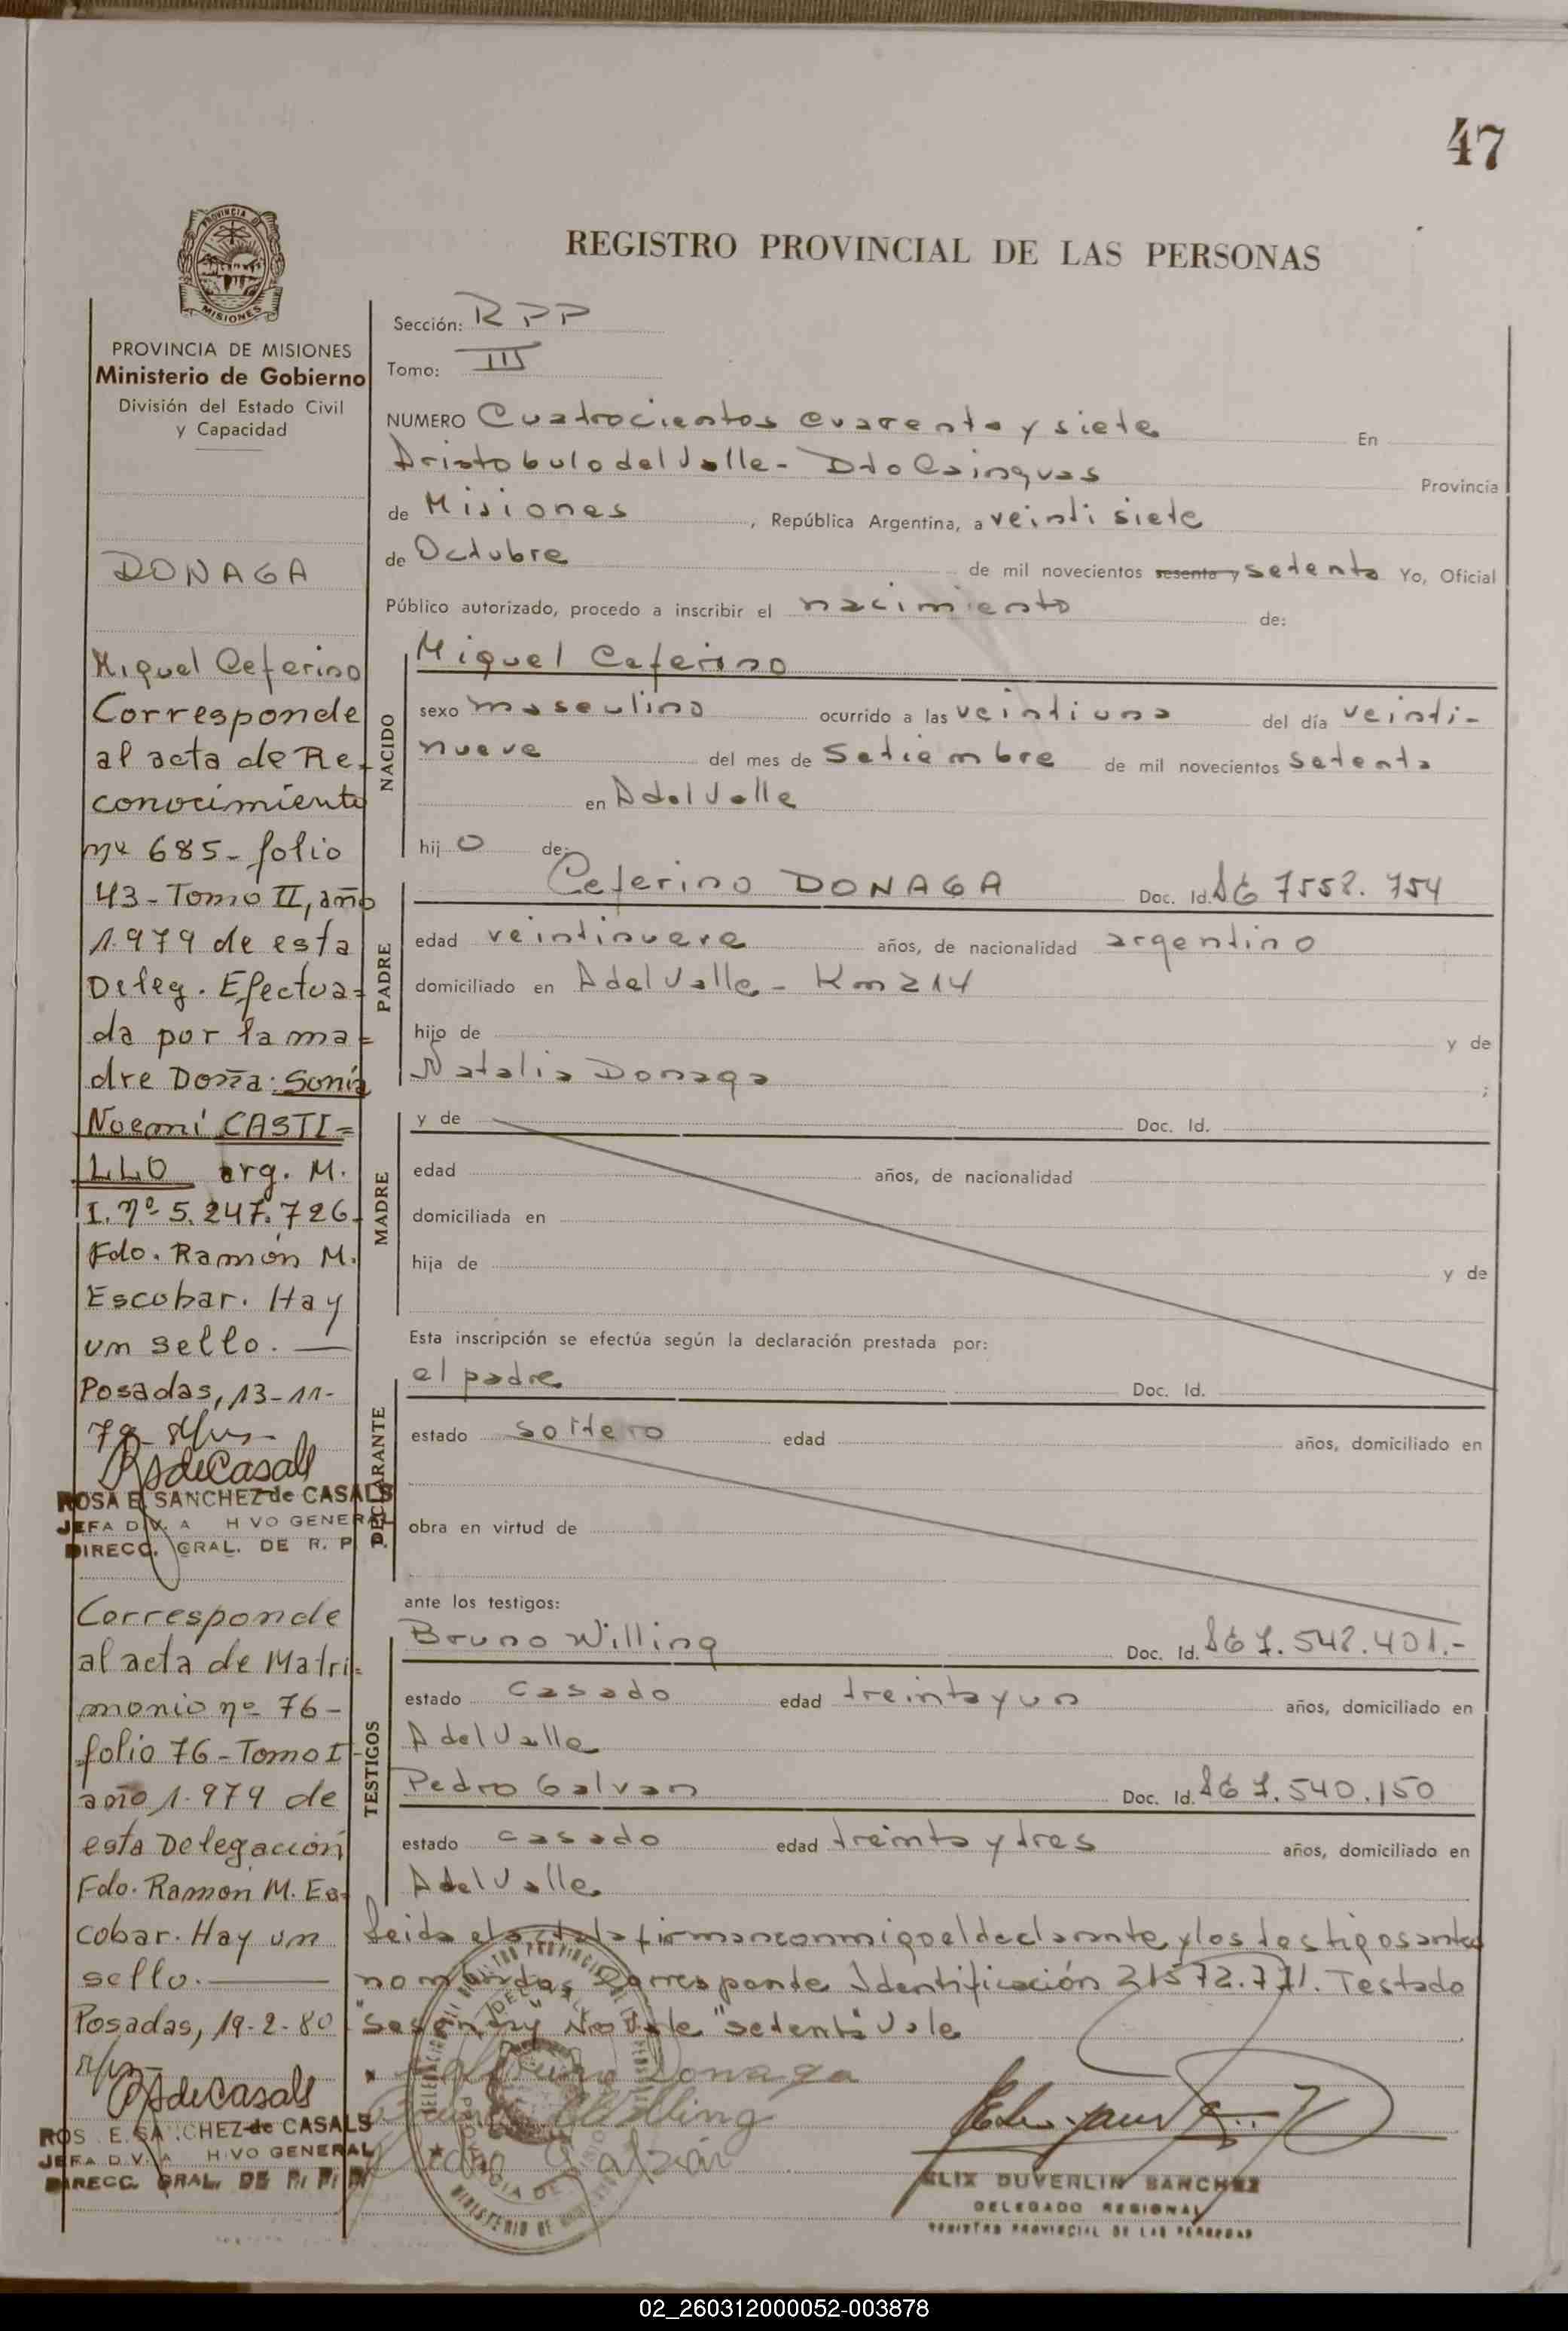 47
PROVINCIA DE
MISIONES
PROVINCIA DE MISIONES
Ministerio de Gobierno
División del Estado Civil
y Capacidad
DONAGA
Miguel Ceferino
Corresponde
al acta de Re-
conocimiento
nº 685- folio
43- Tomo II, año
1.979 de esta
Deleg. Efectua=
da por la ma=
dre Doña: Sonia
Noemi CASTI=
LLO arg. M.
I. nº 5.247.726.
Fdo. Ramón M.
Escobar. Hay
un sello.
Posadas, 13-11-
79
RSdeCasals
ROSA E. SANCHEZ de CASALS
JEFA DIV. A HIVO GENERAL
DIRECC. GRAL. DE R. P.
Corresponde
al acta de Matri=
monio nº 76-
folio 76- Tomo I-
año 1.979 de
esta Delegación
Fdo. Ramon M. Es-
cobar. Hay un
sello.
Posadas, 19-2-80
RSdeCasals
ROS E. SA CHEZ de CASALS
JEFA DIV. A HIVO GENERAL
DIRECC. GRAL. DE
REGISTRO PROVINCIAL DE LAS PERSONAS
Sección: RPP
Tomo: III
NUMERO Cuatrocientos cuarenta y siete En
Aristobulo del Valle- Dto Cainguas Provincia
de Misiones, República Argentina, a veintisiete
de Octubre de mil novecientos sesenta y setenta Yo, Oficial
Público autorizado, procedo a inscribir el nacimiento de:
NACIDO
Miguel Ceferino
sexo masculino ocurrido a las veintiuna del día veinti-
nueve del mes de Setiembre de mil novecientos setenta
en A del Valle
hijo de:
PADRE
Ceferino DONAGA Doc. Id. 7558.754
edad veintinueve años, de nacionalidad argentino
domiciliado en A del Valle- Km 214
hijo de y de
Natalia Donaga ;
MADRE
y de Doc. Id.
edad años, de nacionalidad
domiciliada en
hija de y de
Esta inscripción se efectúa según la declaración prestada por:
DECLARANTE
el padre Doc. Id.
estado soltero edad años, domiciliado en
obra en virtud de
ante los testigos:
TESTIGOS
Bruno Willing Doc. Id. 7.542.401.-
estado casado edad treinta y un años, domiciliado en
A del Valle
Pedro Galvan Doc. Id. 7.540.150
estado casado edad treinta y tres años, domiciliado en
A del Valle
Leida el acta la firman conmigo el declarante y los testigos antes
nombrados Corresponde Identificación 21572.771. Testado
"sesenta y" No Vale "setenta" Vale
Ceferino Donaga
Bruno Willing
Pedro Galván
ELIX DUVERLIN SANCHEZ
DELEGADO REGIONAL
REGISTRO PROVINCIAL DE LAS PERSONAS
02_260312000052-003878